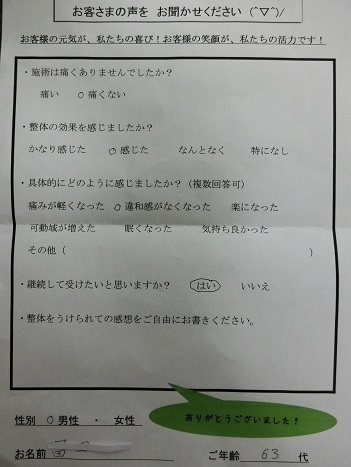 お客さまの声を お聞かせください (^▽^)/
お客様の元気が、私たちの喜び！お客様の笑顔が、私たちの活力です！
・施術は痛くありませんでしたか？
痛い ○痛くない
・整体の効果を感じましたか？
かなり感じた ○感じた なんとなく 特になし
・具体的にどのように感じましたか？（複数回答可）
痛みが軽くなった ○違和感がなくなった 楽になった
可動域が増えた 眠くなった 気持ち良かった
その他（ ）
・継続して受けたいと思いますか？ はい いいえ
・整体をうけられての感想をご自由にお書きください。
ありがとうございました！
性別 ○男性 ・ 女性
お名前 ご年齢 63 代